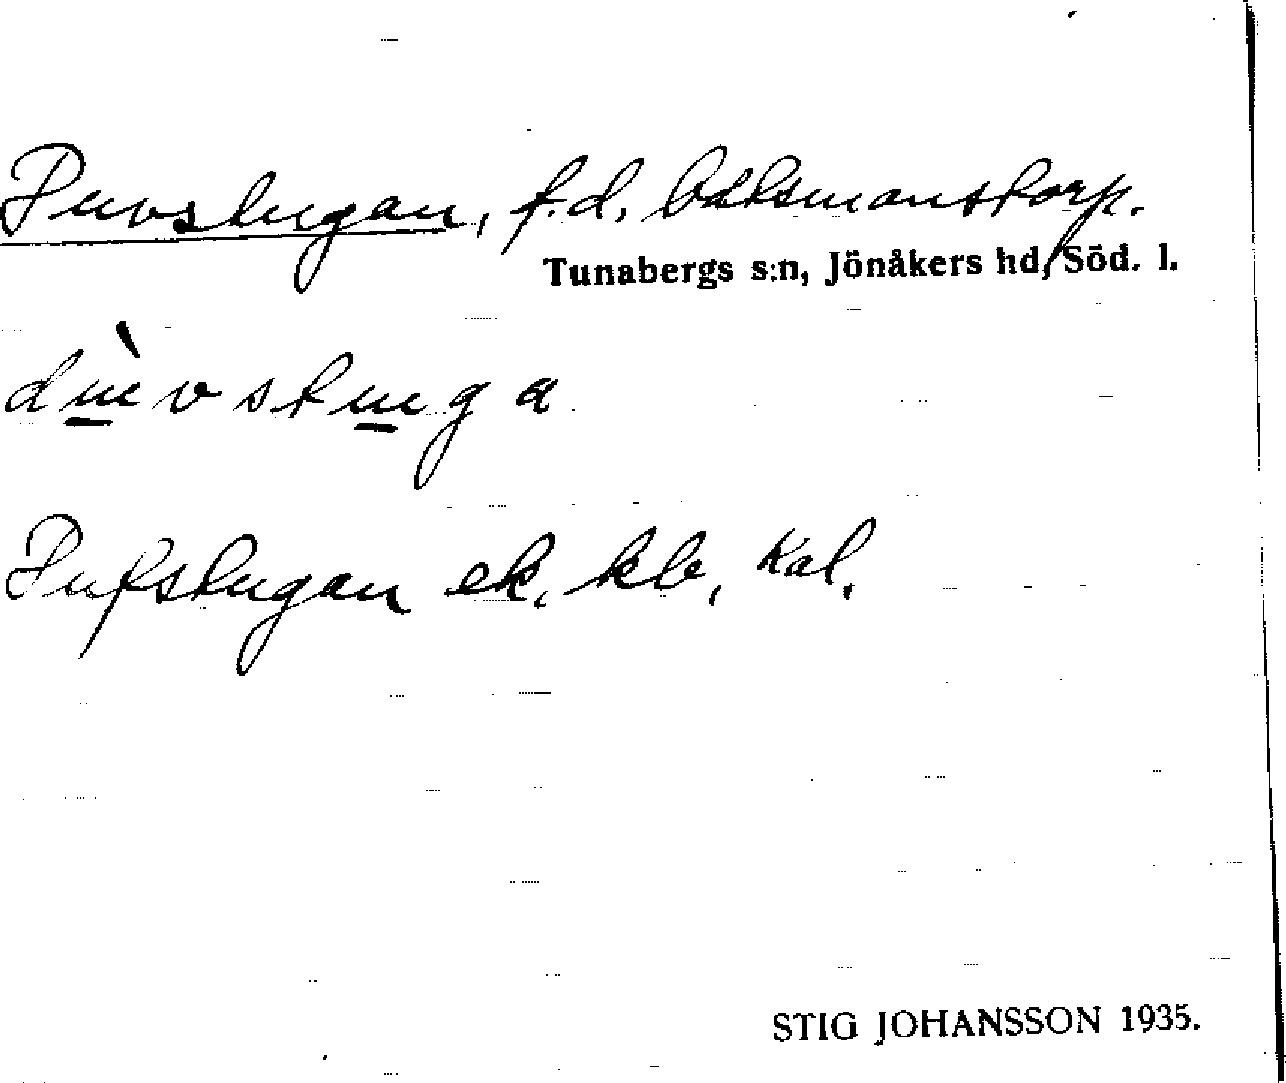 Duvstugan, f.d. båtsmanstorp.
Tunabergs s:n, Jönåkers hd, Söd. l.
dùvstuga
Dufstugan ek. kb, Kal.
STIG JOHANSSON 1935.